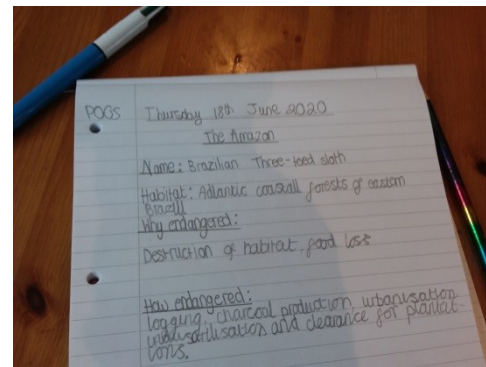 POGS Thursday 18th June 2020
The Amazon
Name: Brazilian Three-toed sloth
Habitat: Adlantic coasall forests of eastern
Brazill
Why endangered:
Destruction of habitat, food loss
How endangered:
logging, charcoal production, urbanisation
industrilisation and clearance for plantat-
ions.